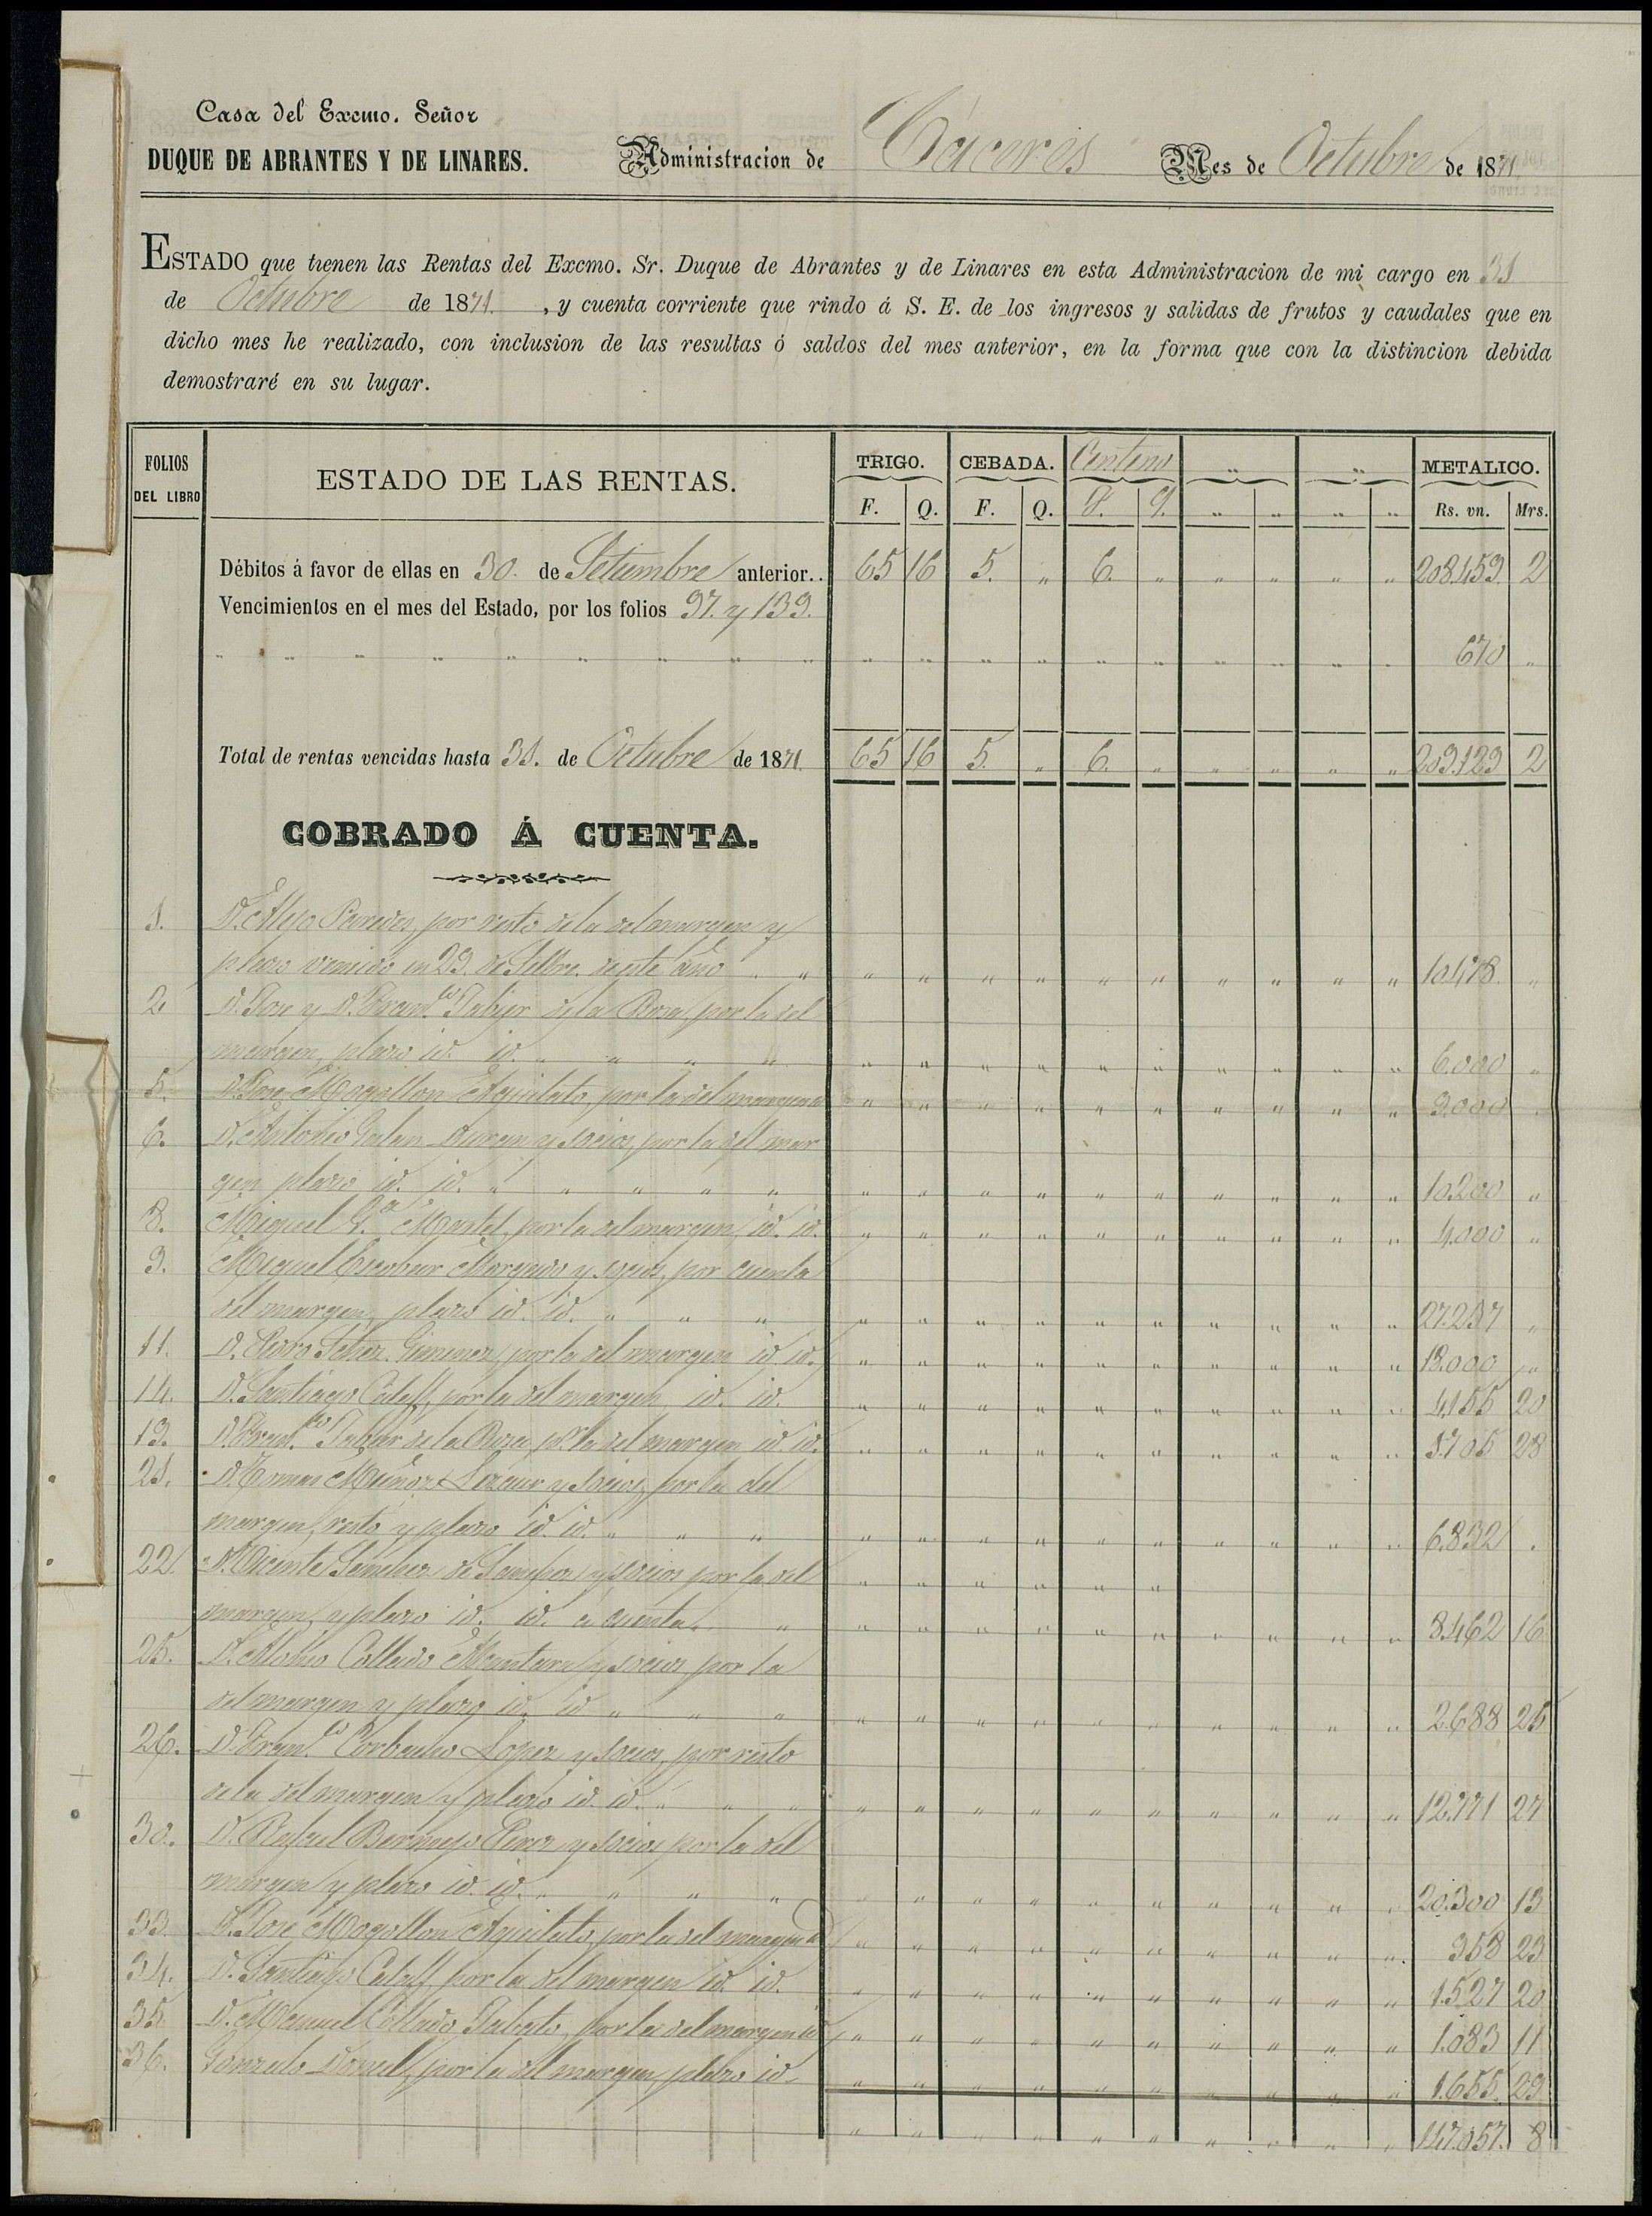 Casa del Excmo. Señor
DUQUE DE ABRANTES Y DE LINARES.
Administracion de Cáceres Mes de Octubre de 1871.
ESTADO que tienen las Rentas del Excmo. Sr. Duque de Abrantes y de Linares en esta Administracion de mi cargo en 31
de Octubre de 1871. , y cuenta corriente que rindo á S. E. de los ingresos y salidas de frutos y caudales que en
dicho mes he realizado, con inclusion de las resultas ó saldos del mes anterior, en la forma que con la distincion debida
demostraré en su lugar.
FOLIOS DEL LIBRO ESTADO DE LAS RENTAS. TRIGO. CEBADA. Centeno " " METALICO.
F. Q. F. Q. F. Q. " " " " Rs. vn. Mrs.
Débitos á favor de ellas en 30. de Setiembre anterior.. 65 16 5. " 6. " " " " " 208.459. 2
Vencimientos en el mes del Estado, por los folios 97. y 139.
" " " " " " " " " " " " " " " " " " " 670 "
Total de rentas vencidas hasta 31. de Octubre de 1871. 65 16 5. " 6. " " " " " 209.129 2
COBRADO Á CUENTA.
1. D. Alejo Paredes, por resto de la del margen y
plazo vencido en 29. de Setbre. de este año " " " " " " " " " " " 10.478. "
2. D. Jose y D. Franco. de la Rosa, por la del
margen, plazo id. id. " " " " " " " " " " " " " " 6.000 "
5. D. Jose Mogollon, por la del margen " " " " " " " " " " 3.000 "
6. D. Antonio Galan Duran y socios, por la del mar
gen plazo id. id. " " " " " " " " " " " " " " " 10.200 "
8. Miguel Ga. Martel, por la del margen, id. id. " " " " " " " " " " 4.000 "
9. Miguel Escobar Morgado y socios, por cuenta
del margen, plazo id. id. " " " " " " " " " " " " " 27.237 "
11. D. Pedro Gimenez, por la del margen id. id. " " " " " " " " " " 12.000 "
14. D. Santiago Calaff, por la del margen, id. id. " " " " " " " " " " 4.155 20
19. D. Franco. de la Rosa por la del margen id. id. " " " " " " " " " " 3.705 28
21. D. Tomas Muñoz y socios, por la del
margen, resto y plazo id. id. " " " " " " " " " " " " " 6.832 "
22. D. Vicente Sanchez de y socios por la del " " " " " "
margen, y plazo id. id. a cuenta " " " " " " " " " " " 8.462 16
25. D. Collado Alcantara y socios, por la
del margen y plazo id. id. " " " " " " " " " " " " " 2.688 25
26. D. Franco. Lopez y socios, por resto
de la del margen y plazo id. id. " " " " " " " " " " " " " 12.771 27
30. D. Rafael Bermejo Perez y socios por la del
margen y plazo id. id. " " " " " " " " " " " " " " 20.300 13
33. D. Jose Mogollon, por la del margen id. " " " " " " " " " " 358 23
34. D. Santiago Calaff, por la del margen id. id. " " " " " " " " " " 1.527 20
35. D. Manuel Collado, por la del margen id. " " " " " " " " " " 1.083 11
36. Gonzalo, por la del margen, plazo id. " " " " " " " " " " 1.655. 29
" " " " " " " " " " 147.057. 8